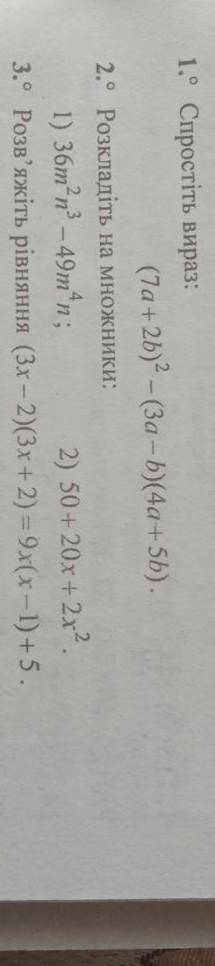 1.° Спростіть вираз:
(7a + 2b)² − (3a − b)(4a + 5b).
2.° Розкладіть на множники:
1) 36m²n³ − 49m⁴n; 2) 50 + 20x + 2x².
3.° Розв’яжіть рівняння (3x − 2)(3x + 2) = 9x(x − 1) + 5.